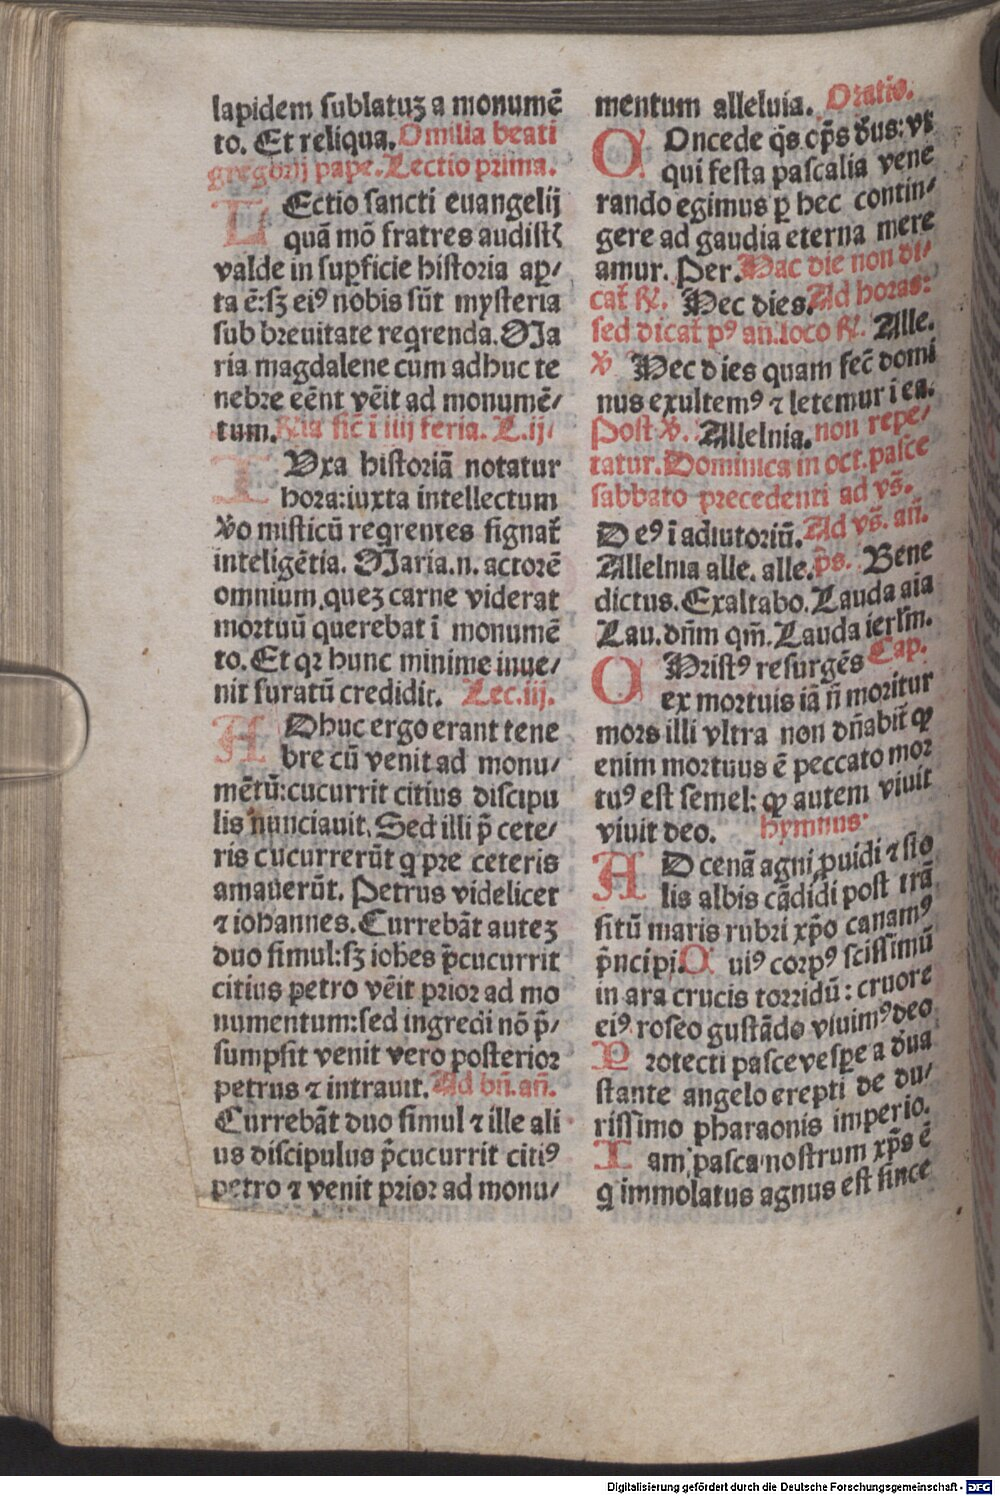 lapidem sublatuʒ a monumē
to. Et reliqua. Omilia beati
gregorij pape. Lectio prima.
LEctio sancti euangelij
quā mō fratres audistꝭ
valde in suꝑficie historia aꝑ/
ta ē: sʒ eiꝰ nobis sūt mysteria
sub breuitate reqrenda. Ma
ria magdalene cum adhuc te
nebre eēnt vēit ad monumē/
tum. Ria sic̄ ī iiij feria. L. ij.
IUxa historiā notatur
hora: iuxta intellectum
ꝟo misticū reqrentes signat̄
inteligētia. Maria .n. actorē
omnium, queʒ carne viderat
mortuū querebat ī monumē
to. Et qꝛ hunc minime inue/
nit furatū credidit. Lec. iij.
ADhuc ergo erant tene
bre cū venit ad monu/
mētū: cucurrit citius discipu
lis nunciauit. Sed illi p̄ cete/
ris cucurrerūt q pre ceteris
amauerūt. Petrus videlicet
⁊ iohannes. Currebāt auteʒ
duo simul: sʒ iohes p̄cucurrit
citius petro vēit prior ad mo
numentum: sed ingredi nō p̄/
sumpsit venit vero posterior
petrus ⁊ intrauit. Ad bn̄. an̄.
Currebāt duo simul ⁊ ille ali
us discipulus p̄cucurrit citiꝰ
petro ⁊ venit prior ad monu/
mentum alleluia. Oratio.
COncede q̄s op̄s de̅us: vt
qui festa pascalia vene
rando egimus ꝑ hec contin/
gere ad gaudia eterna mere
amur. Per. Hac die non di/
cat̄ ꝶ. Hec dies. Ad horas:
sed dicat̄ pꝰ an̄. loco ꝶ. Alle.
ꝟ Hec dies quam fec̄ domi
nus exultemꝰ ⁊ letemur ī ea.
Post ꝟ. Allelnia. non repe/
tatur. Dominica in oct. pasce
sabbato precedenti ad vs̄.
Deꝰ ī adiutoriū. Ad vs̄. an̄.
Allelnia alle. alle. p̄s. Bene
dictus. Exaltabo. Lauda aīa
Lau. dn̄m qm̄. Lauda ierl̄m.
CHristꝰ resurgēs Cap.
ex mortuis iā n̄ moritur
mors illi vltra non dn̄abit̄ ꝙ
enim mortuus ē peccato mor
tuꝰ est semel: ꝙ autem viuit
viuit deo. hymnus.
AD cenā agni ꝓuidi ⁊ sto
lis albis cādidi post trā
sitū maris rubri xp̄o canamꝰ
p̄ncipi. Cuiꝰ corpꝰ sctissimū
in ara crucis torridū: cruore
eiꝰ roseo gustādo viuimꝰ deo
Protecti pasce vesꝑe a deua
stante angelo erepti de du/
rissimo pharaonis imperio.
Iam pasca nostrum xp̄s ē
q immolatus agnus est since
Digitalisierung gefördert durch die Deutsche Forschungsgemeinschaft - DFG